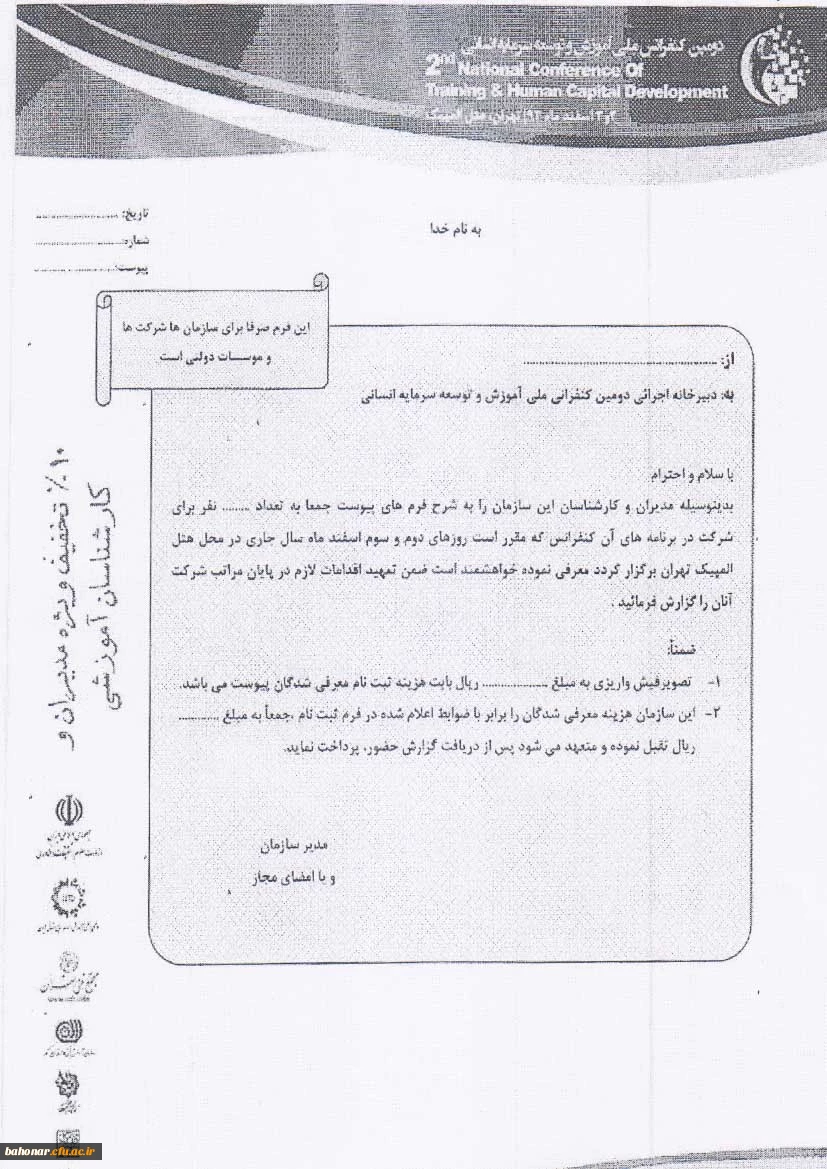 دومین کنفرانس ملی آموزش و توسعه سرمایه انسانی
2nd National Conference Of
Training & Human Capital Development
۲و۳ اسفند ماه ۹۲، تهران، هتل المپیک
تاریخ: ..........................
شماره: ..........................
پیوست: ..........................
به نام خدا
این فرم صرفا برای سازمان ها شرکت ها
و موسسات دولتی است
از: ......................................................
به: دبیرخانه اجرائی دومین کنفرانی ملی آموزش و توسعه سرمایه انسانی
با سلام و احترام
بدینوسیله مدیران و کارشناسان این سازمان را به شرح فرم های پیوست جمعا به تعداد ........ نفر برای
شرکت در برنامه های آن کنفرانس که مقرر است روزهای دوم و سوم اسفند ماه سال جاری در محل هتل
المپیک تهران برگزار گردد معرفی نموده خواهشمند است ضمن تمهید اقدامات لازم در پایان مراتب شرکت
آنان را گزارش فرمائید .
ضمناً:
۱- تصویرفیش واریزی به مبلغ .................. ریال بابت هزینه ثبت نام معرفی شدگان پیوست می باشد.
۲- این سازمان هزینه معرفی شدگان را برابر با ضوابط اعلام شده در فرم ثبت نام ،جمعاً به مبلغ ...........
ریال تقبل نموده و متعهد می شود پس از دریافت گزارش حضور، پرداخت نماید.
مدیر سازمان
و یا امضای مجاز
۱۰٪ تخفیف ویژه مدیران و
کارشناسان آموزشی
جمهوری اسلامی ایران
وزارت علوم، تحقیقات و فناوری
مجتمع فنی تهران
bahonar.cfu.ac.ir